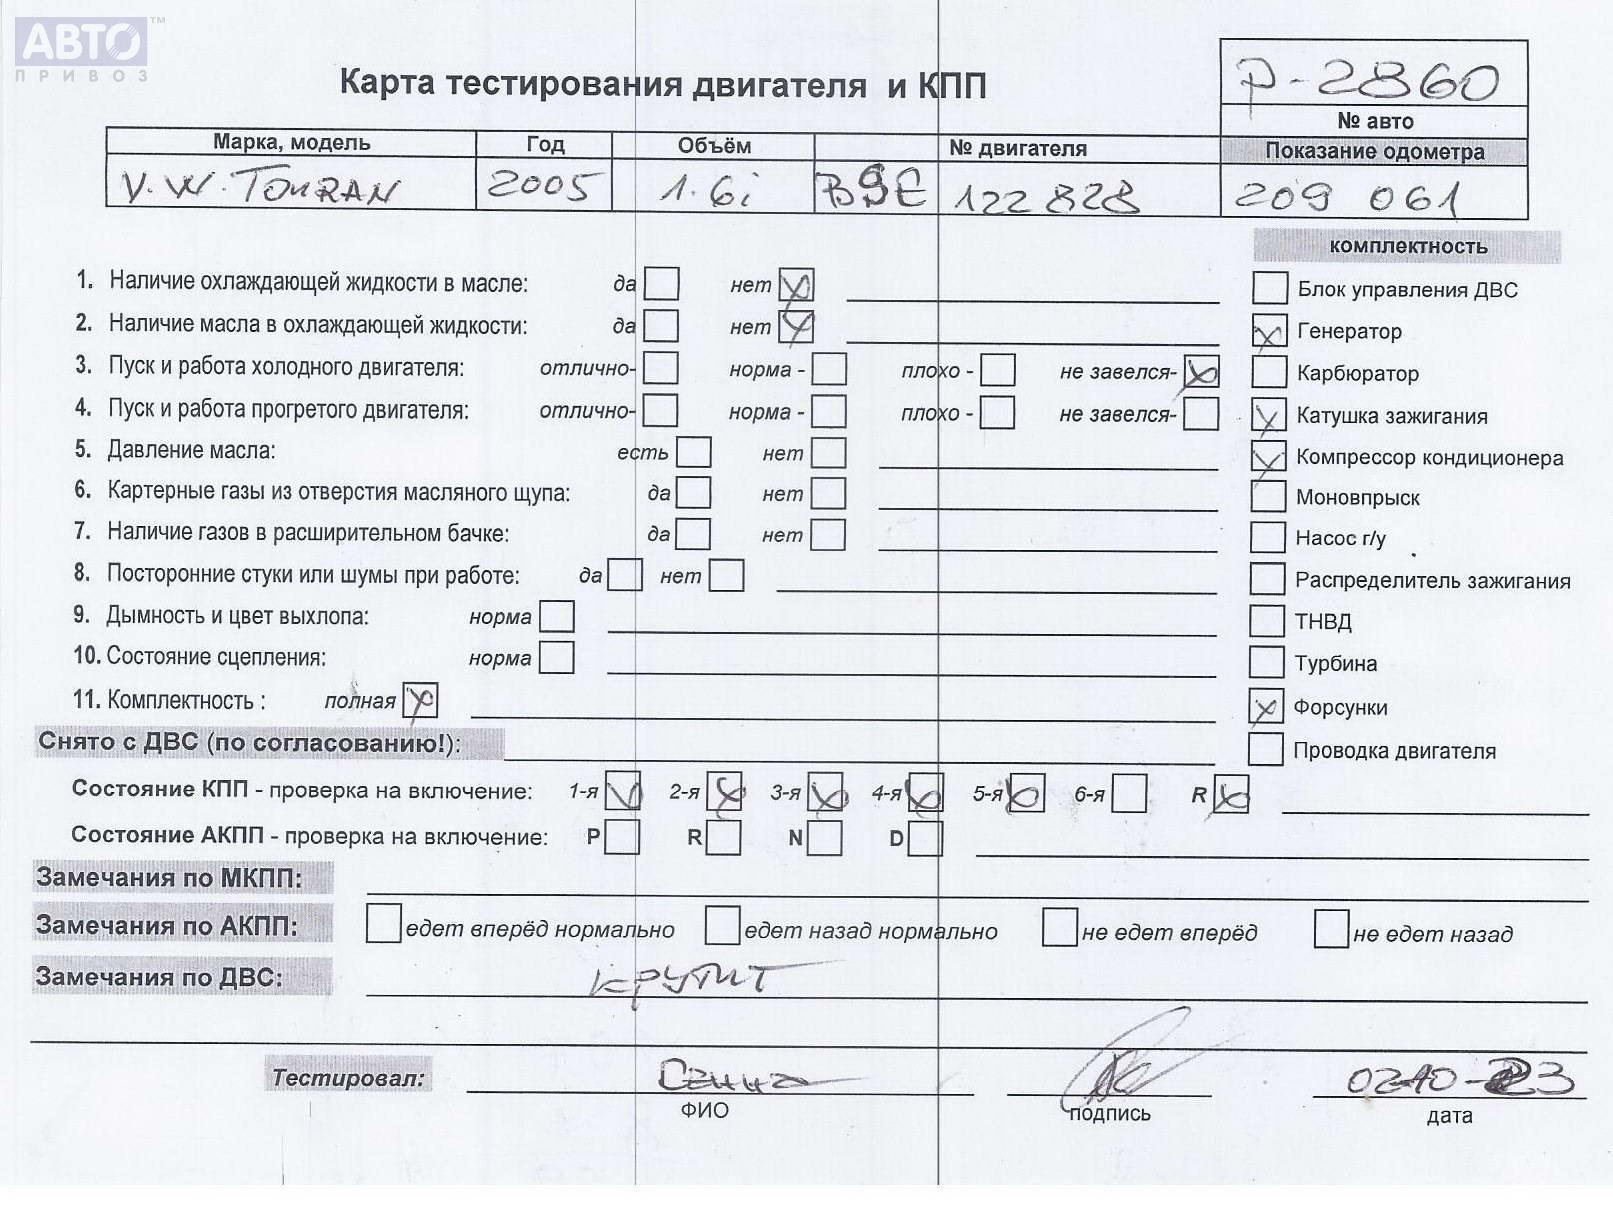 АВТО ™
ПРИВОЗ
Карта тестирования двигателя и КПП
P-2860
№ авто
Марка, модель Год Объём № двигателя Показание одометра
V.W. TOURAN 2005 1.6i BSE 122 828 209 061
комплектность
1. Наличие охлаждающей жидкости в масле: да нет
Блок управления ДВС
2. Наличие масла в охлаждающей жидкости: да нет
Генератор
3. Пуск и работа холодного двигателя: отлично- норма - плохо - не завелся-
Карбюратор
4. Пуск и работа прогретого двигателя: отлично- норма - плохо - не завелся-
Катушка зажигания
5. Давление масла: есть нет
Компрессор кондиционера
6. Картерные газы из отверстия масляного щупа: да нет
Моновпрыск
7. Наличие газов в расширительном бачке: да нет
Насос г/у
8. Посторонние стуки или шумы при работе: да нет
Распределитель зажигания
9. Дымность и цвет выхлопа: норма
ТНВД
10. Состояние сцепления: норма
Турбина
11. Комплектность : полная
Форсунки
Снято с ДВС (по согласованию!):
Проводка двигателя
Состояние КПП - проверка на включение: 1-я 2-я 3-я 4-я 5-я 6-я R
Состояние АКПП - проверка на включение: P R N D
Замечания по МКПП:
Замечания по АКПП: едет вперёд нормально едет назад нормально не едет вперёд не едет назад
Замечания по ДВС: крутит
Тестировал: 02-10-23
ФИО подпись дата